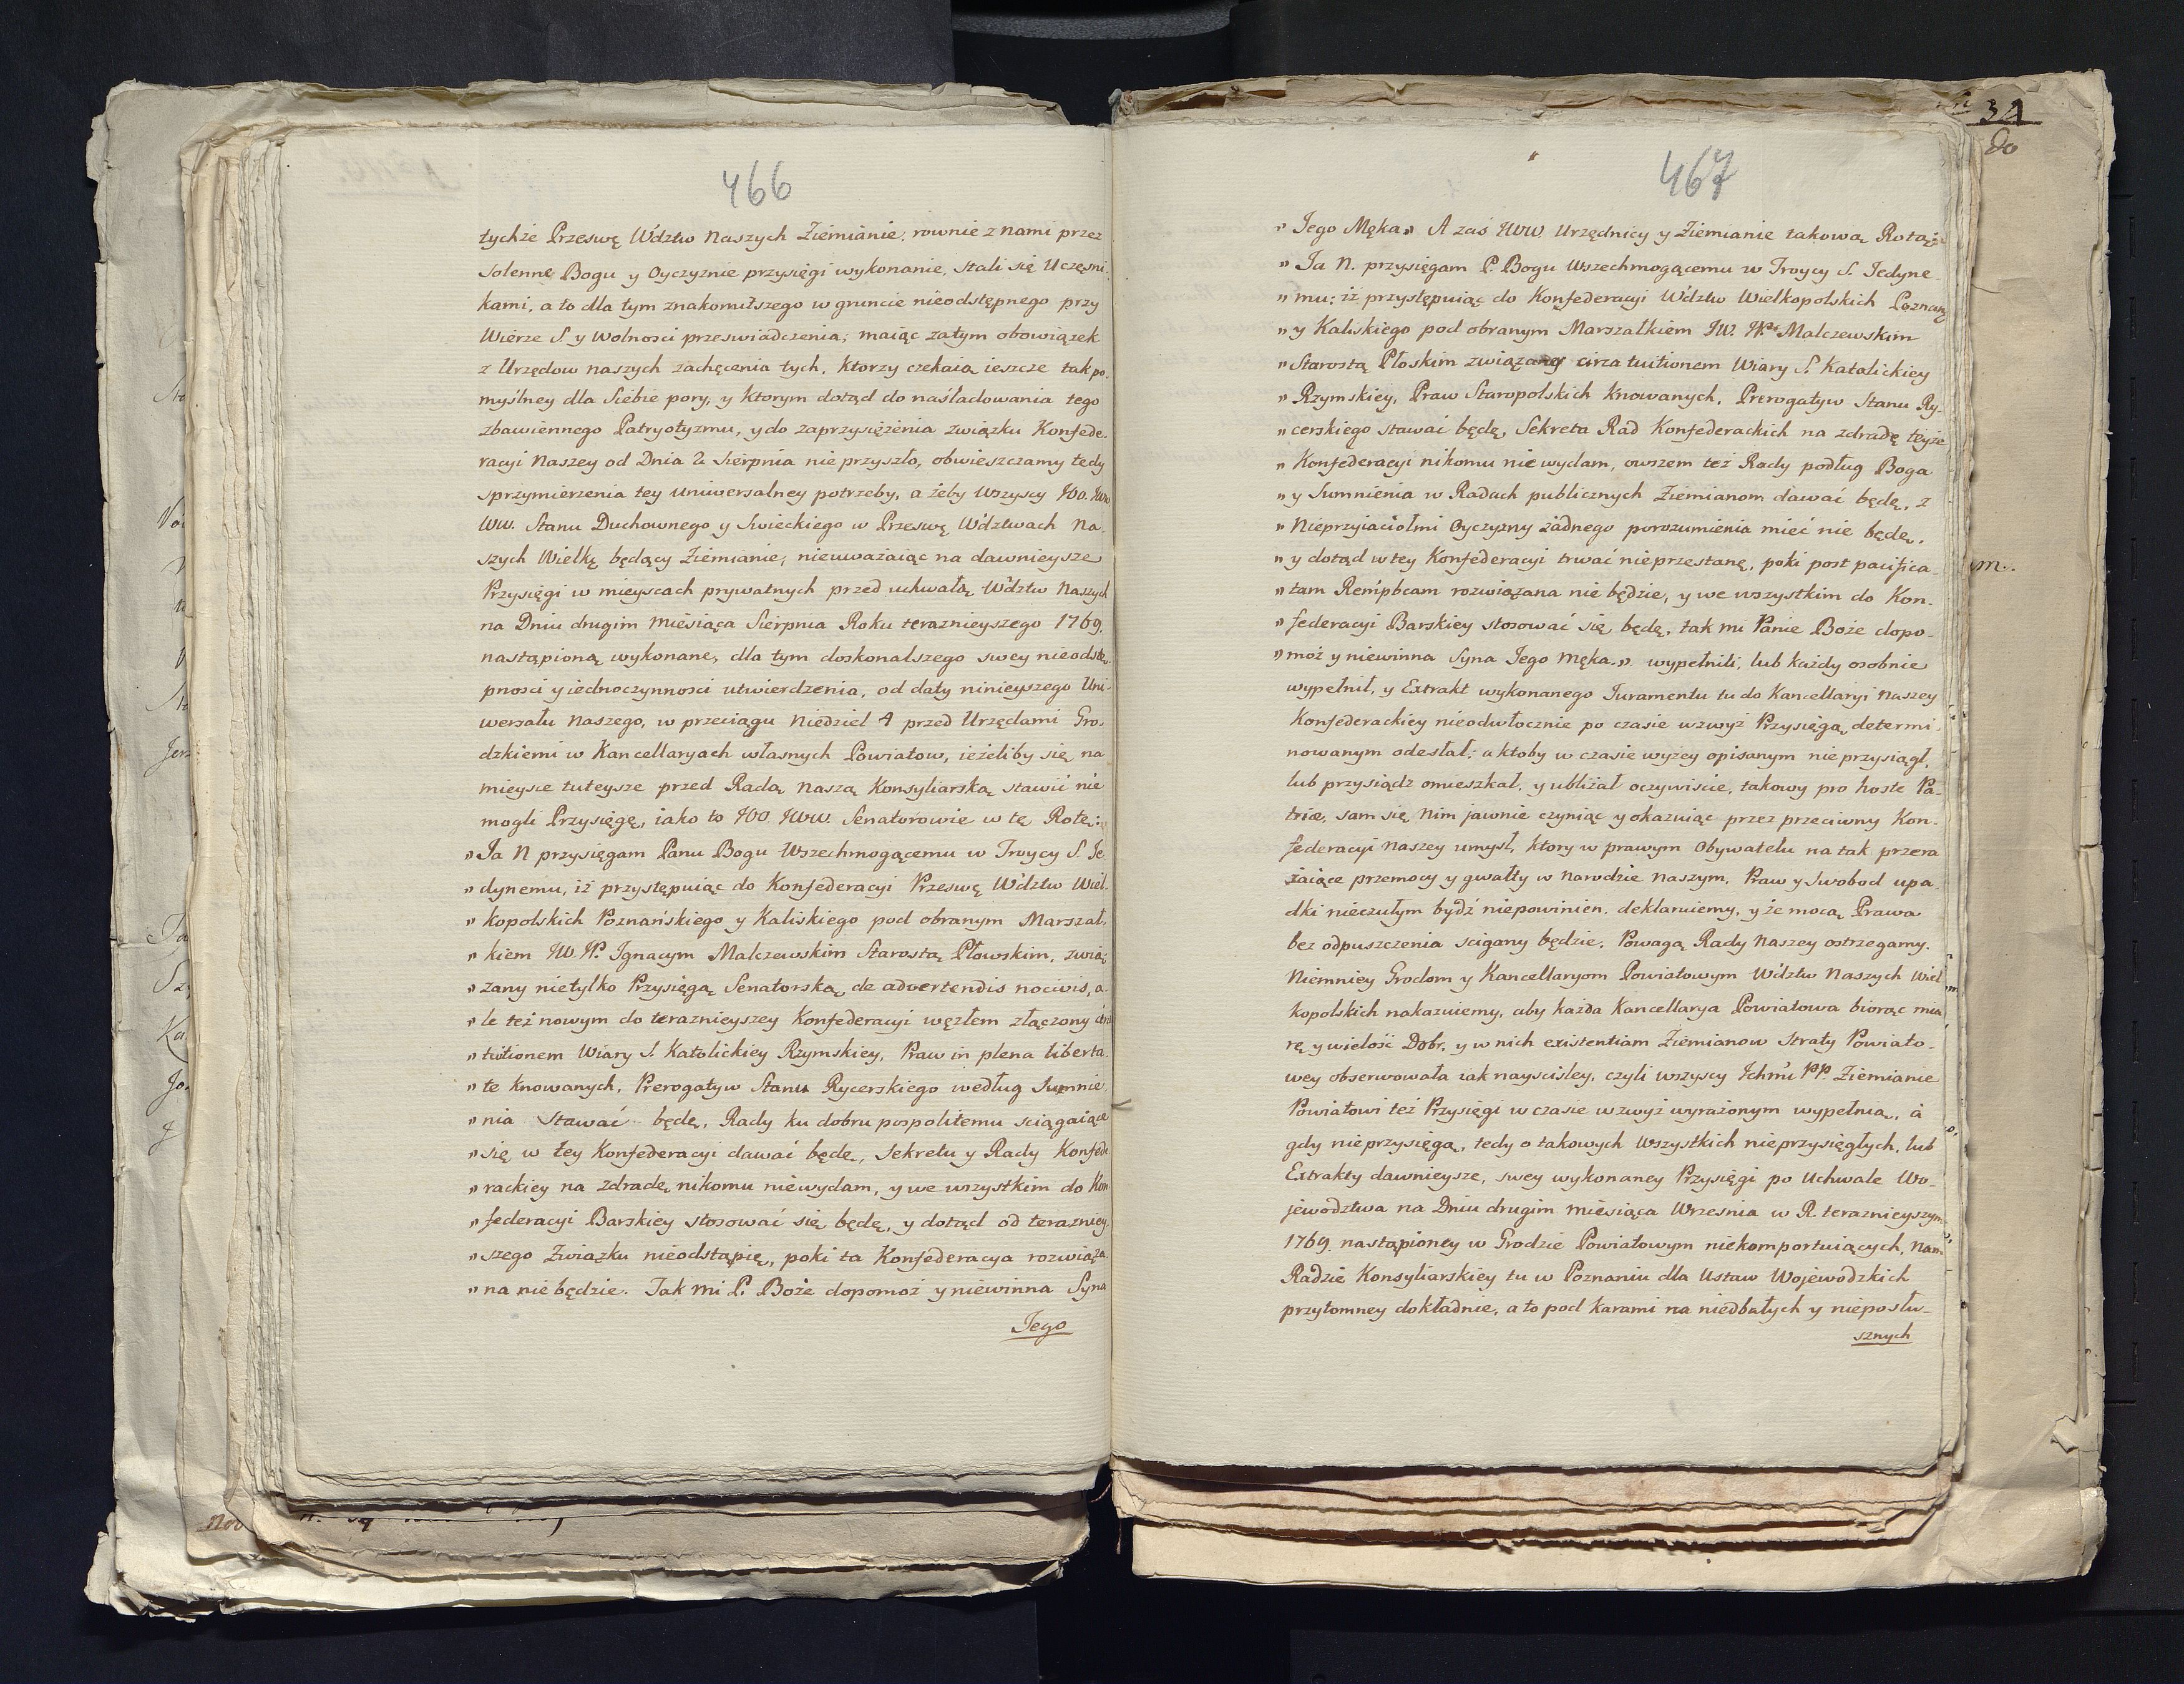 466
tychże Przeswę Wdztw Naszych Ziemianie, rownie z nami przez
solenne Bogu y Oyczyznie przysięgi wykonanie, stali się Uczęsni,
kami, a to dla tym znakomitszego w gruncie nieodstępnego przy
Wierze S. y Wolnosci przeswiadczenia; maiąc zatym obowiązek
z Urzędow naszych zachęcenia tych, ktorzy czekaią ieszcze tak po,
myślney dla Siebie pory, y ktorym dotąd do naśladowania tego
zbawiennego Patryotyzmu, y do zaprzysiężenia związku Konfede,
racyi Naszey od Dnia 2 Sierpnia nie przyszło, obwieszczamy tedy
sprzymierzenia tey uniwersalney potrzeby, a żeby Wszyscy
WW. Stanu Duchownego y Swieckiego w Przeswę Wdztwach Na,
szych Wielkę będący Ziemianie, nieuważaiąc na dawnieysze
Przysięgi w mieyscach prywatnych przed uchwałą Wdztw Naszych
na Dniu drugim Miesiąca Sierpnia Roku teraznieyszego 1769.
nastąpioną wykonane, dla tym doskonalszego swey nieodstę,
pnosci y iednoczynnosci utwierdzenia, od daty ninieyszego Uni,
wersału Naszego, w przeciągu Niedziel 4 przed Urzędami Gro,
dzkiemi w Kancellaryach własnych Powiatow, ieżeliby się na
mieysce tuteysze przed Radą Naszą Konsyliarską stawić nie
mogli Przysięgę, iako to JOO. JWW. Senatorowie w tę Rotę:
„ Ja N przysięgam Panu Bogu Wszechmogącemu w Troycy S. Je
„ dynemu, iż przystępuiąc do Konfederacyi Przeswę Wdztw Wiel,
„ kopolskich Poznańskiego y Kaliskiego pod obranym Marszał,
„ kiem JW. JP. Ignacym Malczewskim Starostą Płowskim, zwią
„ zany nietylko Przysięgą Senatorską de advertendis nocivis, a,
„ le też nowym do teraznieyszey Konfederacyi węzłem złączony circa
„ tuitionem Wiary S. Katolickiey Rzymskiey, Praw in plena liberta,
„ te Knowanych, Prerogatyw Stanu Rycerskiego według Sumnie,
„ nia Stawać będę, Rady ku dobru pospolitemu sciągaiące
„ się w tey Konfederacyi dawać będę, Sekretu y Rady Konfede
„ rackiey na zdradę nikomu niewydam, y we wszystkim do Kon
„ federacyi Barskiey stosować się będę, y dotąd od teraznieg,
„ szego Związku nieodstąpię, poki ta Konfederacya rozwiąza,
„ na nie będzie. Tak mi P. Boże dopomoż y niewinna Syna
Jego
467
„ Jego Męka„ A zaś JWW. Urzędnicy y Ziemianie takową Rotą:
„ Ja N. przysięgam P. Bogu Wszechmogącemu w Troycy S. Jedyne,
„ mu; iż przystępuiąc do Konfederacyi Wdztw Wielkopolskich Poznan,
„ y Kaliskiego pod obranym Marszałkiem JW. JP. Malczewskim
„ Starostą Płoskim związany circa tuitionem Wiary S. Katolickiey
„ Rzymskiey, Praw Staropolskich Knowanych, Prerogatyw Stanu Ry,
„ cerskiego stawać będę, Sekreta Rad Konfederackich na zdradę teyże
„ Konfederacyi nikomu nie wydam, owszem też Rady podług Boga
„ y Sumnienia w Radach publicznych Ziemianom dawać będę, z
„ Nieprzyiaciołmi Oyczyzny żadnego porozumienia mieć nie będę,
„ y dotąd w tey Konfederacyi trwać nieprzestanę, poki post pacifica,
„ tam Rempbcam rozwiązana nie będzie, y we wszystkim do Kon,
„ federacyi Barskiey stosować się będę, tak mi Panie Boże dopo,
„ moż y niewinna Syna Jego Męka.„ wypełnili, lub każdy osobnie
wypełnił, y Extrakt wykonanego Juramentu tu do Kancellaryi Naszey
Konfederackiey nieodwłocznie po czasie wzwyż Przysięgą determi,
nowanym odesłał; a ktoby w czasie wyżey opisanym nie przysiągł,
lub przysiądz omieszkał, y ubliżał oczywiście, takowy pro hoste Pa,
triæ, sam się nim jawnie czyniąc y okazuiąc przez przeciwny Kon,
federacyi Naszey umysł, ktory w prawym Obywatelu na tak przera
żaiące przemocy y gwałty w Narodzie Naszym, Praw y Swobod upa,
dki nieczułym bydź niepowinien, deklaruiemy, y że mocą Prawa
bez odpuszczenia scigany będzie, Powagą Rady Naszey ostrzegamy.
Niemniey Grodom y Kancellaryom Powiatowym Wdztw Naszych Wiel
kopolskich nakazuiemy, aby każda Kancellarya Powiatowa biorąc mia,
rę y wielość Dobr, y w nich existentiam Ziemianow Straty Powiato,
wey obserwowała iak nayscisley, czyli wszyscy Ichmu PP. Ziemianie
Powiatowi też Przysięgi w czasie wzwyż wyrażonym wypełnią, a
gdy nie przysięgą, tedy o takowych Wszystkich nieprzysięgłych, lub
Extrakty dawnieysze, swey wykonaney Przysięgi po Uchwale Wo,
jewodztwa na Dniu drugim Miesiąca Wrzesnia w R. teraznieyszym
1769. nastąpioney w Grodzie Powiatowym niekomportuiących, Nam
Radzie Konsyliarskiey tu w Poznaniu dla Ustaw Wojewodzkich
przytomney dokładnie, a to pod karami na niedbałych y nieposłu,
sznych
34
do